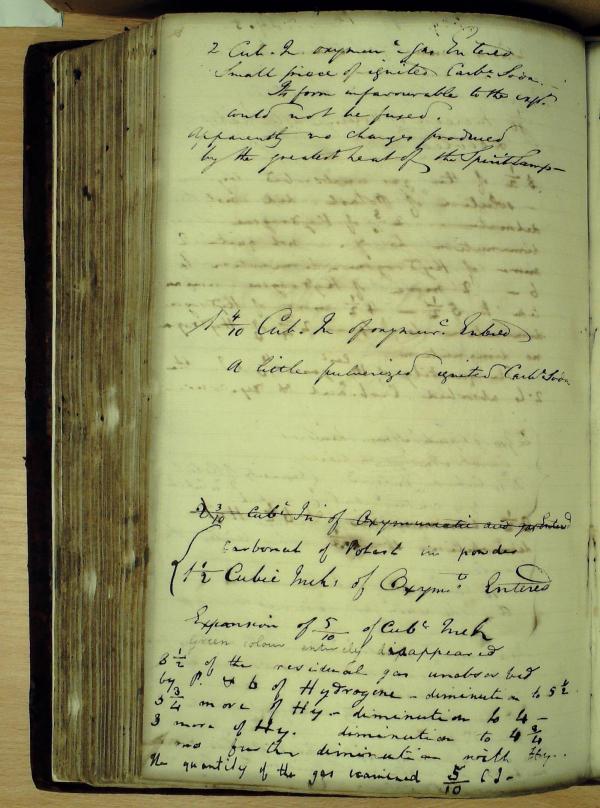 2 Cub. In oxymurc gas Entered
Small piece of ignited Carbte Soda.
Its form unfavourable to the expt.
could not be fused.
Apparently no changes produced
by the greatest heat of the Spirit Lamp –
1 4/10 Cub. In of oxymurc. Entered
A little pulverized ignited Carbte Soda
3/10 Cubc In of Oxymuriatic acid gas Entered
Carbonat of Potash in powder
1 1/2 Cubic Inchs of Oxymc Entered
Expansion of 5/10 of Cubc Inch
green colour entirely disappeared
3 1/2 of the residual gas unabsorbed
by P. & 6 of Hydrogene – diminution to 5 1/2
5 3/4 more of Hy – diminution to 4 –
3 more of Hy. diminution to 4 3/4
no further diminution with Hy.
The quantity of the gas examined 5/10 C I –